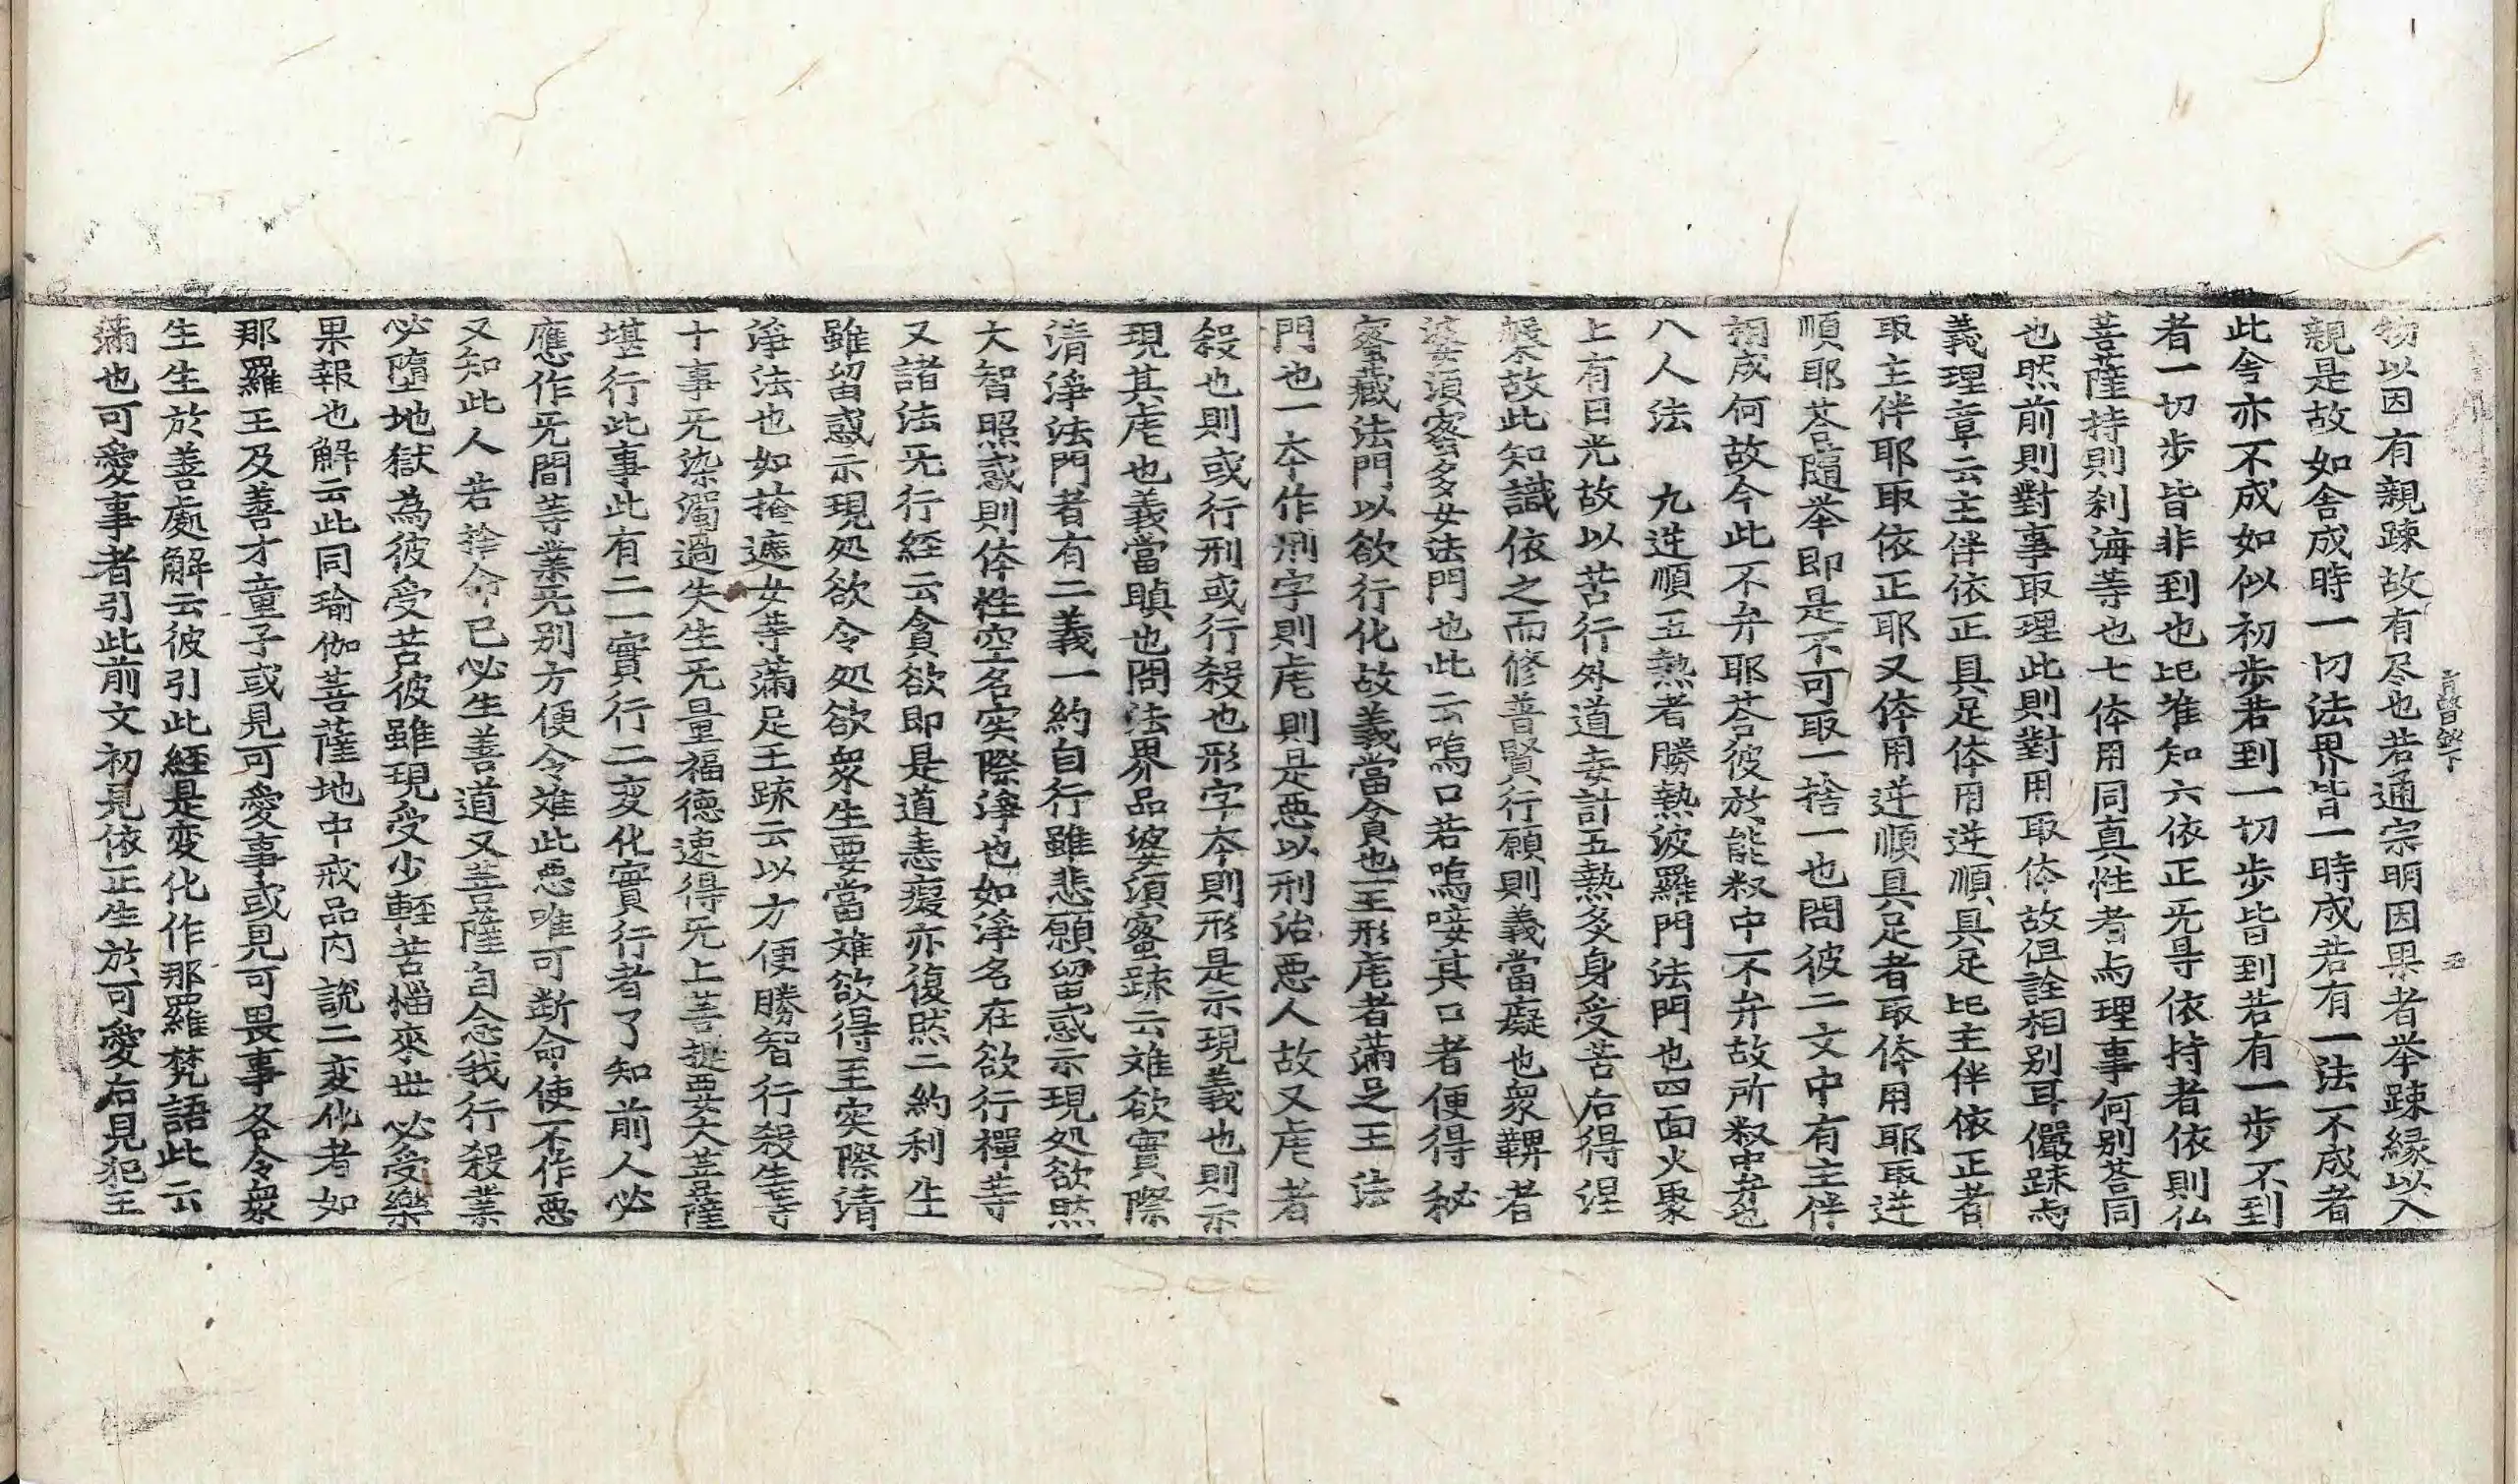 物以因有親踈故有尽也若通宗明因果者举踈縁以入
親是故如舎成時一切法界皆一時成若有一法不成者
此舎亦不成如似初步若到一切步皆到若有一步不到
者一切步皆非到也比准知六依正无㝵依持者依則仏
菩薩持則刹海等也七体用同真性者与理事何別荅同
也然前則對事取理此則對用取体故但詮相别耳儼踈与
義理章云主伴依正具足体用逆順具足比主伴依正者
取主伴耶取依正耶又体用逆順具足者取体用耶取逆
順耶荅随举即是不可取一捨一也問彼二文中有主伴
相成何故今此不弁耶荅彼於能叙中不弁故所叙中弁也
八人法　九逆順五熱者勝熱波羅門法門也四面火聚
上有日光故以苦行外道妄計五熱炙身受苦后得涅
槃故此知識依之而修普賢行願則義當癡也衆鞞者
婆須蜜多女法門也此云嗚口若嗚唼其口者便得秘
蜜藏法門以欲行化故義當貪也王形虐者滿足王法
門也一夲作刑字則虐則是悪以刑治悪人故又虐者
殺也則或行刑或行殺也形字夲則形是示現義也則示
現其虐也義當瞋也問法界品婆須蜜踈云雖欲實際
清淨法門者有二義一約自行雖悲願留惑示現処欲然
大智照惑則体性空名实際淨也如淨名在欲行禪等
又諸法无行経云貪欲即是道恚癡亦復然二約利生
雖留惑示現処欲令処欲衆生要當雖欲得至实際清
淨法也如掩遮女等滿足王踈云以方便勝智行殺生等
十事无染濁過失生无量福德速得无上菩提要大菩薩
堪行此事此有二一實行二变化實行者了知前人必
應作无間等業无别方便令难此悪唯可断命使不作悪
又知此人若捨命已必生善道又菩薩自念我行殺業
必墮地獄為彼受苦彼雖現受少輕苦惱來世必受樂
果報也解云此同瑜伽菩薩地中戒品内說二変化者如
那羅王及善才童子或見可愛事或見可畏事各令衆
生生於善處解云彼引此経是変化作那羅梵語此云
滿也可愛事者引此前文初見依正生於可愛后見犯王